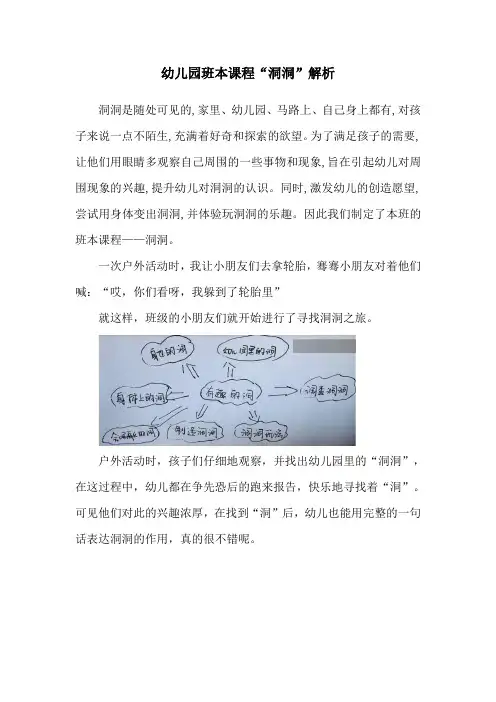 幼儿园班本课程“洞洞”解析
洞洞是随处可见的,家里、幼儿园、马路上、自己身上都有,对孩
子来说一点不陌生,充满着好奇和探索的欲望。为了满足孩子的需要,
让他们用眼睛多观察自己周围的一些事物和现象,旨在引起幼儿对周
围现象的兴趣,提升幼儿对洞洞的认识。同时,激发幼儿的创造愿望,
尝试用身体变出洞洞,并体验玩洞洞的乐趣。因此我们制定了本班的
班本课程——洞洞。
一次户外活动时，我让小朋友们去拿轮胎，骞骞小朋友对着他们
喊：“哎，你们看呀，我躲到了轮胎里”
就这样，班级的小朋友们就开始进行了寻找洞洞之旅。
幼儿园里的洞
身体上的洞
有趣的洞
调查洞洞
制造洞洞
户外活动时，孩子们仔细地观察，并找出幼儿园里的“洞洞”，
在这过程中，幼儿都在争先恐后的跑来报告，快乐地寻找着“洞”。
可见他们对此的兴趣浓厚，在找到“洞”后，幼儿也能用完整的一句
话表达洞洞的作用，真的很不错呢。